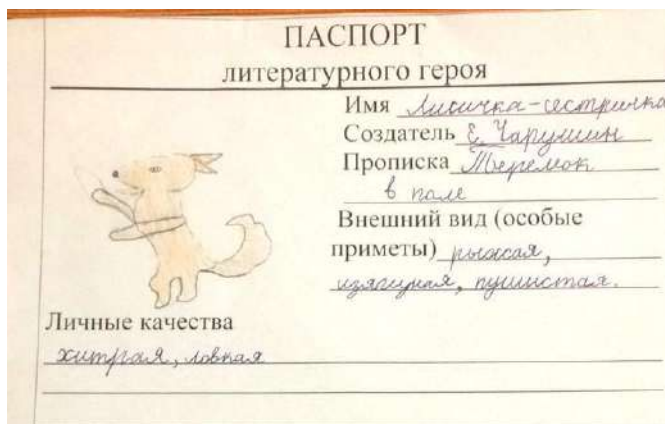 ПАСПОРТ
литературного героя
Имя Лисичка-сестричка
Создатель Е. Чарушин
Прописка Теремок
в поле
Внешний вид (особые
приметы) рыжая,
изящная, пушистая.
Личные качества
хитрая, ловкая